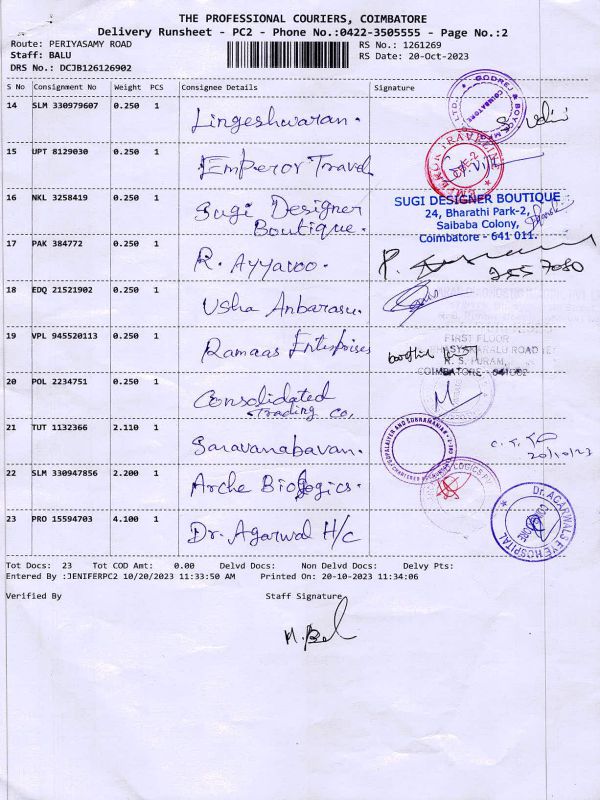 THE PROFESSIONAL COURIERS, COIMBATORE
Delivery Runsheet - PC2 - Phone No.:0422-3505555 - Page No.:2
Route: PERIYASAMY ROAD
Staff: BALU
DRS No.: DCJB126126902
RS No.: 1261269
RS Date: 20-Oct-2023
S No Consignment No Weight PCS Consignee Details Signature
14 SLM 330979607 0.250 1 Lingeshwaran.
GODREJ & BOYCE
COIMBATORE
15 UPT 8129030 0.250 1 Emperor Travel
16 NKL 3258419 0.250 1 Sugi Designer Boutique.
SUGI DESIGNER BOUTIQUE
24, Bharathi Park-2,
Saibaba Colony,
Coimbatore - 641 011.
17 PAK 384772 0.250 1 R. Ayyavoo.
18 EDQ 21521902 0.250 1 Usha Anbarasu.
19 VPL 945520113 0.250 1 Ramaas Enterprises
FIRST FLOOR
R. S. PURAM,
COIMBATORE - 641002
20 POL 2234751 0.250 1 Consolidated Trading Co,
21 TUT 1132366 2.110 1 Saravanabavan.
20/10/23
22 SLM 330947856 2.200 1 Arche Biologics.
23 PRO 15594703 4.100 1 Dr. Agarwal H/C
Dr. AGARWALS EYE HOSPITAL
Tot Docs: 23 Tot COD Amt: 0.00 Delvd Docs: Non Delvd Docs: Delvy Pts:
Entered By :JENIFERPC2 10/20/2023 11:33:50 AM Printed On: 20-10-2023 11:34:06
Verified By Staff Signature